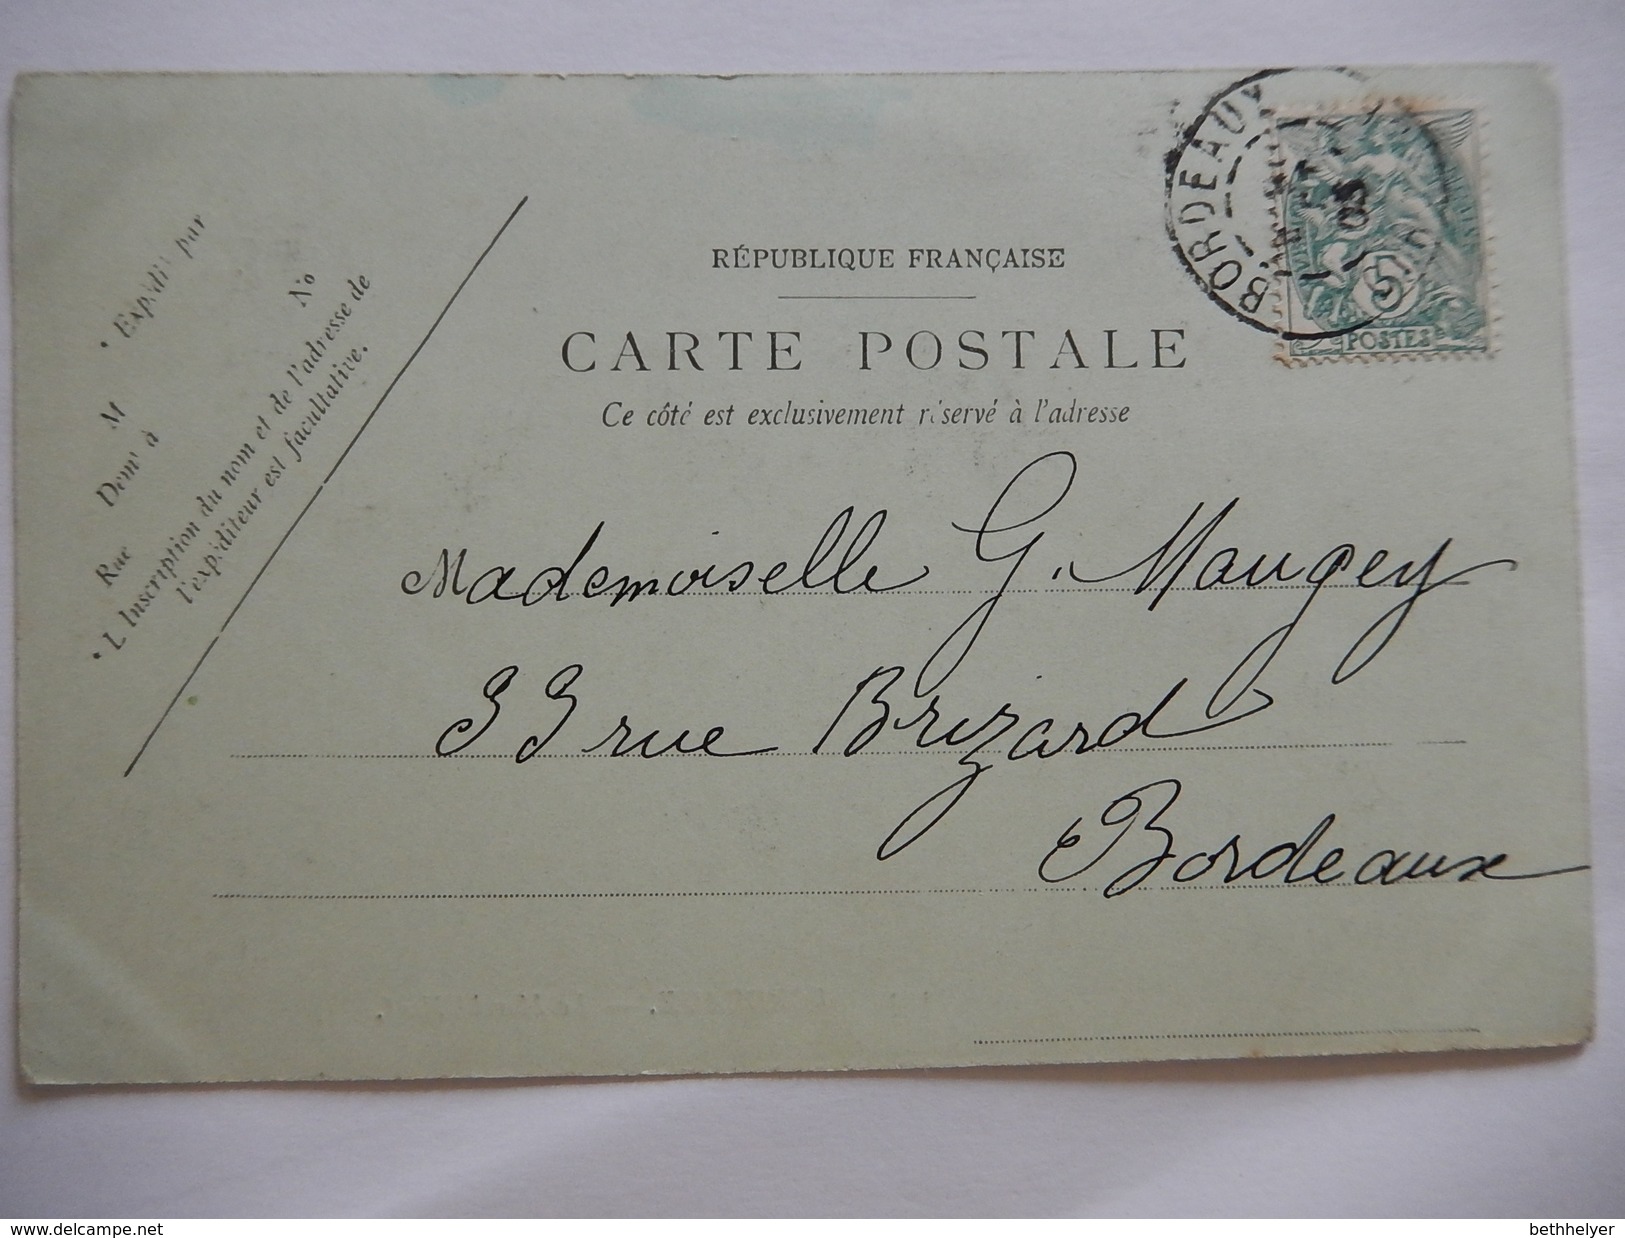 Expédié par
M
Demt à
Rue No
L'Inscription du nom et de l'adresse de
l'expéditeur est facultative.
RÉPUBLIQUE FRANÇAISE
CARTE POSTALE
Ce côté est exclusivement réservé à l'adresse
BORDEAUX
03
POSTES
Mademoiselle G. Maugey
33 rue Brizard
Bordeaux
www.delcampe.net
bethhelyer